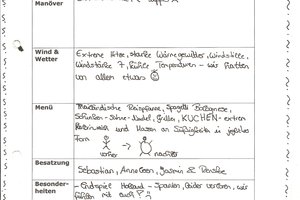 Manöver
Wind &
Wetter
Extreme Hitze, starke Wärmegewitter, Windstille,
Windstärke 7, kühle Temperaturen - wir hatten
von allem etwas
Menü
Thailändische Reispfanne, Spagetti Bolognese,
Schinken-Sahne-Nudel, Grillen, KUCHEN-
und Massen an Süßigkeiten in jeglicher
Form
vorher
nachher
Besatzung
Sebastian, Jasmin &
Besonder-
heiten
- Endspiel Holland - Spanien, leider verloren, wir